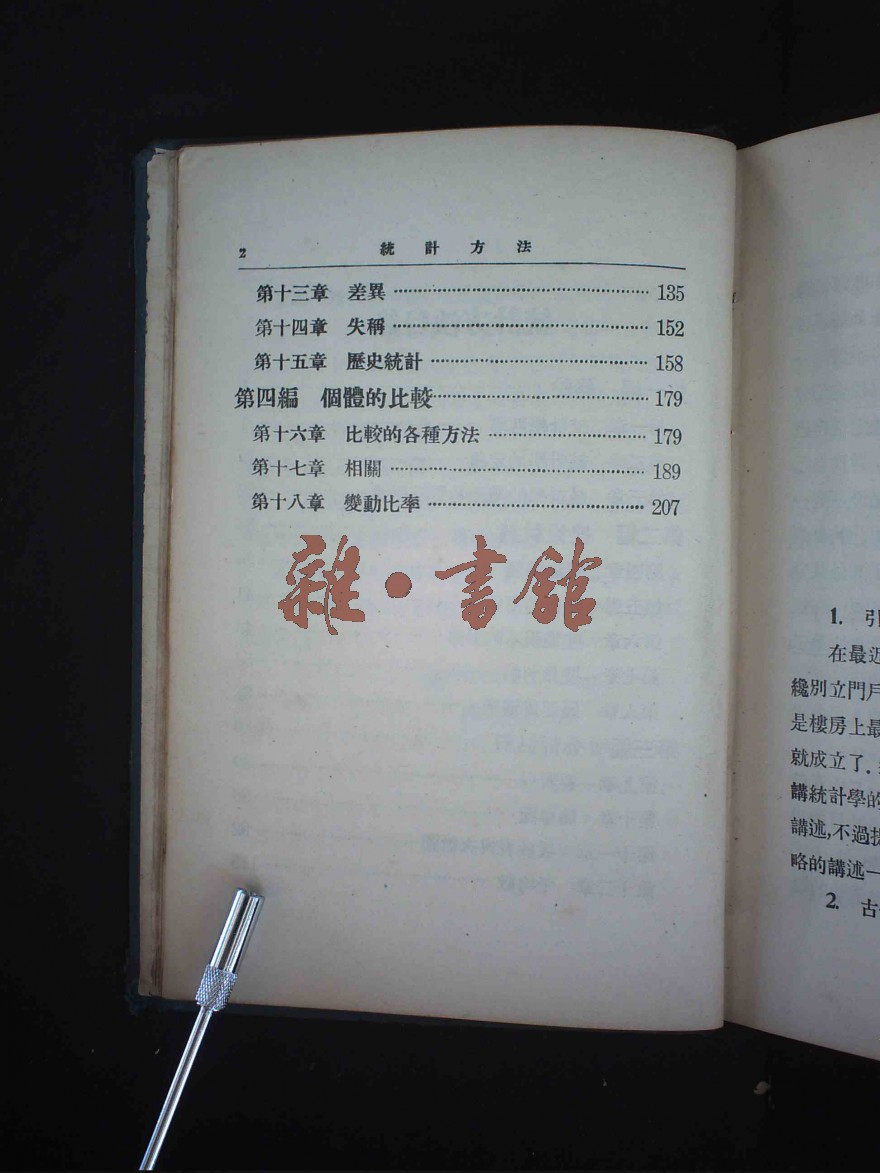 2 統計方法
第十三章 差異 135
第十四章 失稱 152
第十五章 歷史統計 158
第四編 個體的比較 179
第十六章 比較的各種方法 179
第十七章 相關 189
第十八章 變動比率 207
雜·書館
1. 引
在最近
纔別立門戶
是樓房上最
就成立了.
講統計學的
講述,不過提
略的講述一
2. 古